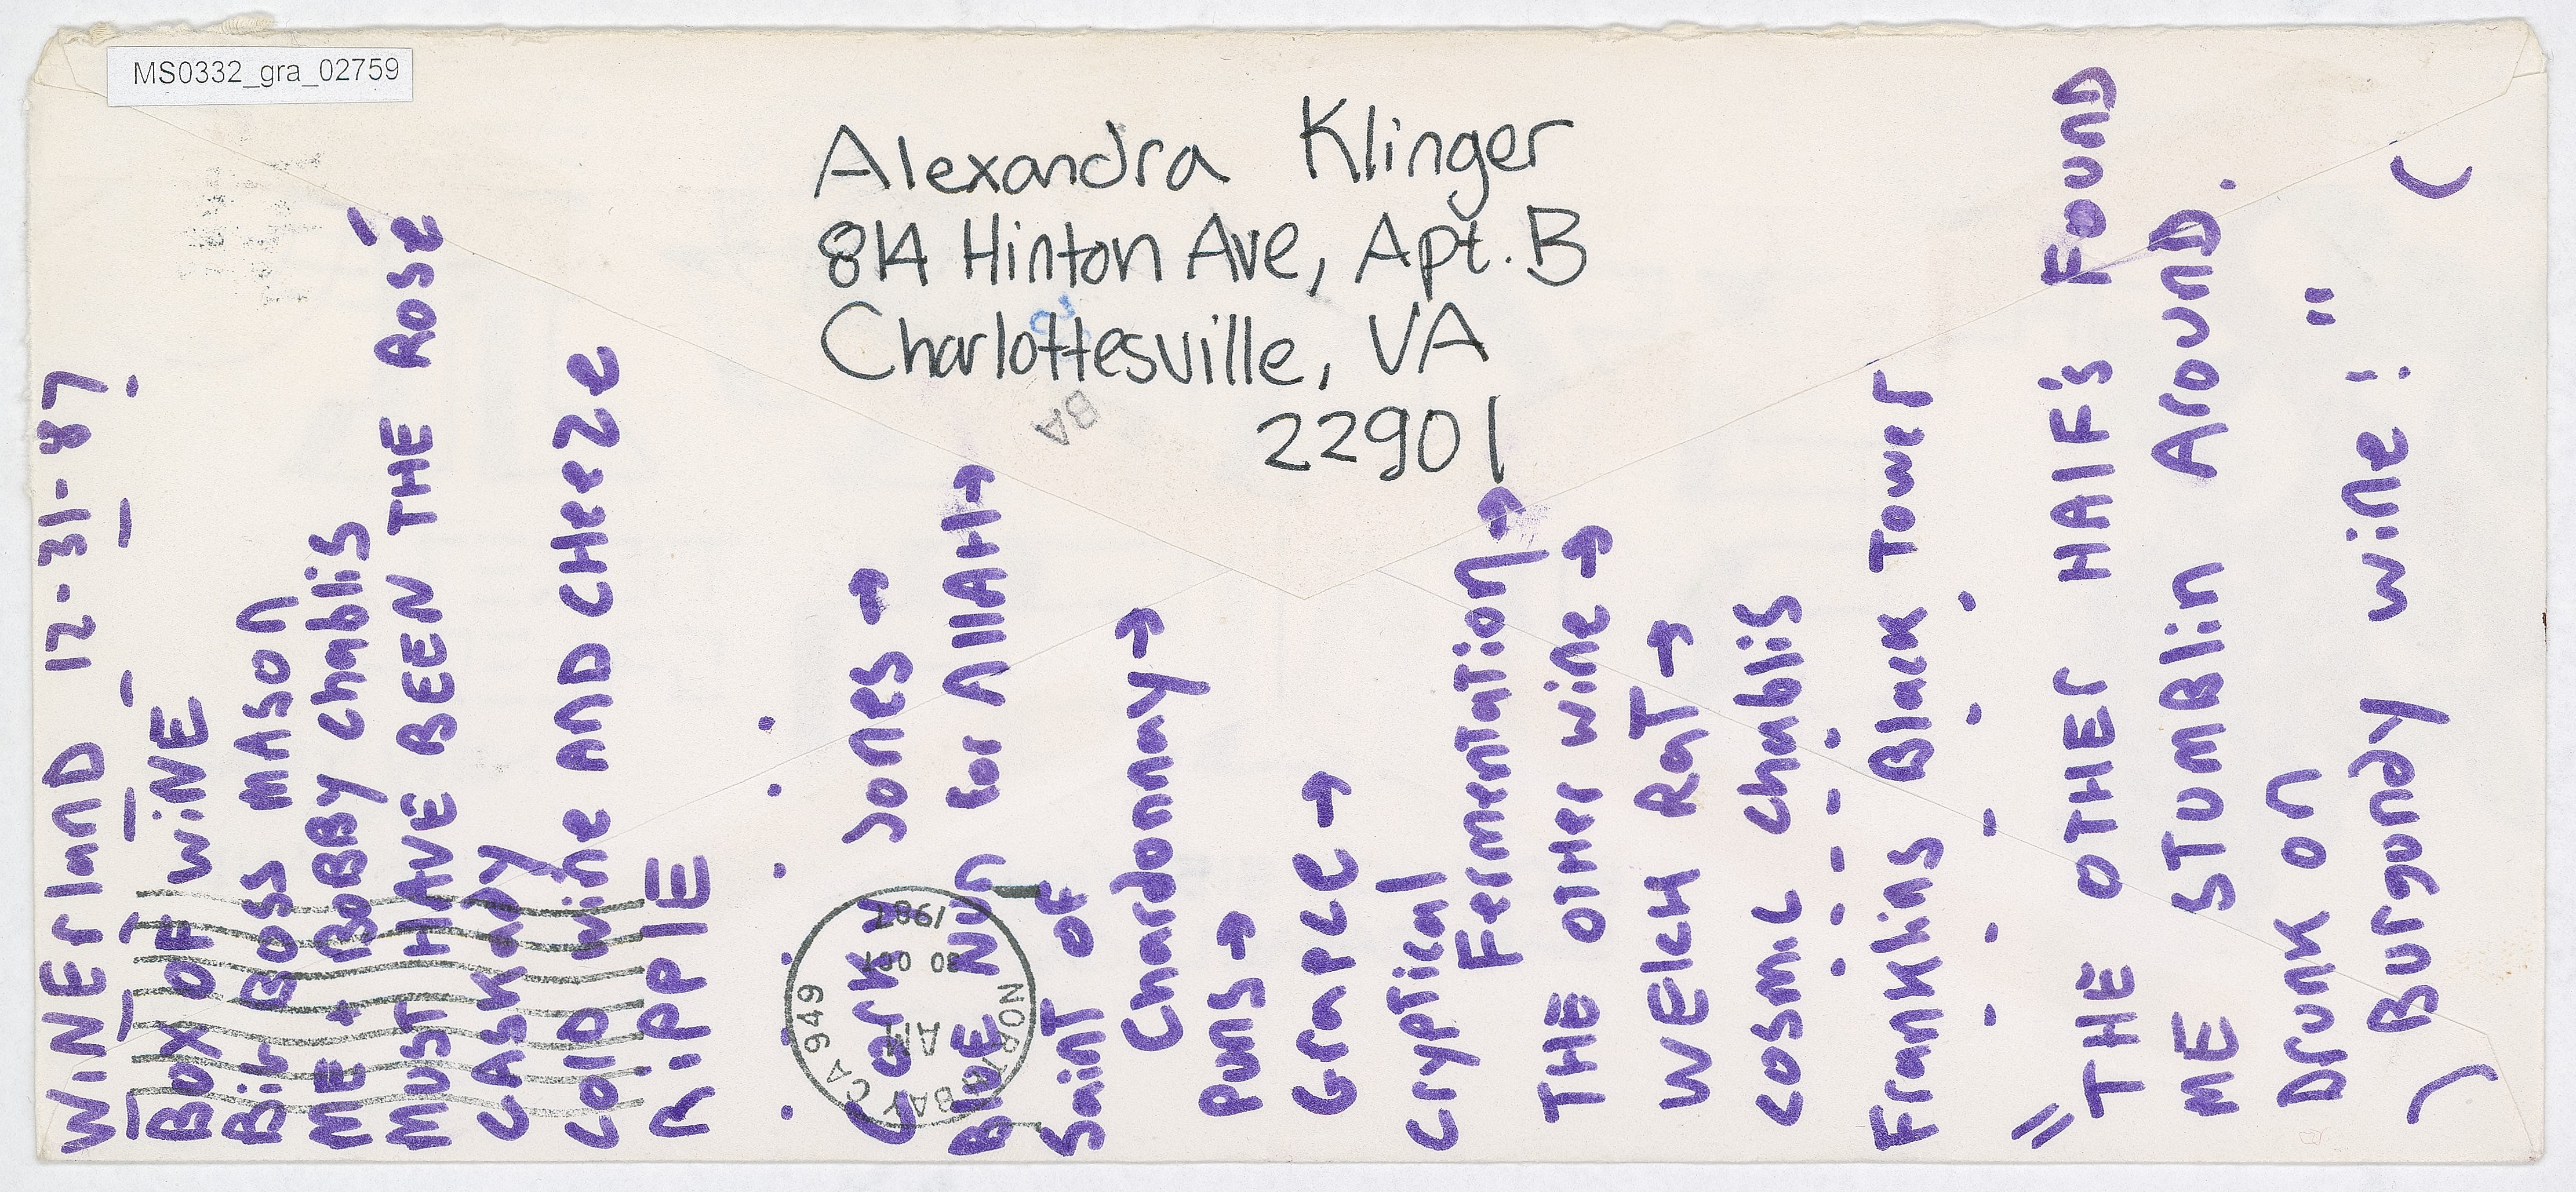 MS0332_gra_02759
Alexandra Klinger
814 Hinton Ave, Apt. B
Charlottesville, VA
22901
BA
WINErlanD 12-31-87
Box OF WiNE
Big Boss MASON
ME + BoBBY chablis
Must HAVE BEEN THE Rosé
CASKady
Cold Wine AND CHeeze
RipplE
Cork Jones →
BluE NUn for AllAH →
Saint of
Chardonnay →
Puns →
Grape →
Cryptical
Fermentation →
THE OTHer wine →
WElcH RaT →
cosmic chablis
Franklins Black Tower
"THE OTHEr HAlF's Found
ME STumBlin Around.
Drunk on "
( Burgundy wine! )
NORTH BAY CA 949
AM
30 OCT
1987